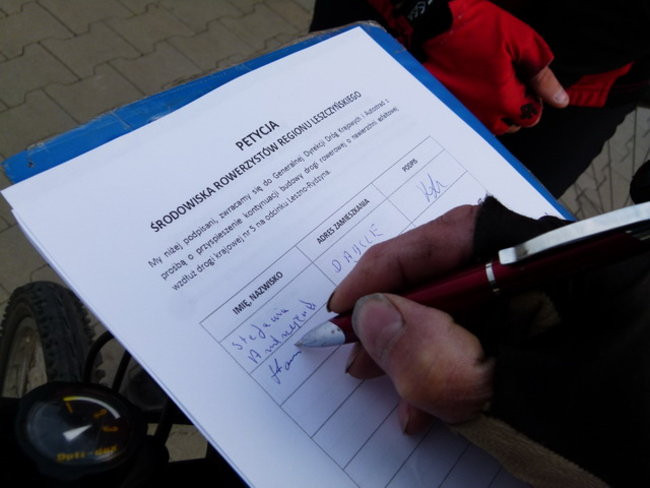 PETYCJA
ŚRODOWISKA ROWERZYSTÓW REGIONU LESZCZYŃSKIEGO
My niżej podpisani, zwracamy się do Generalnej Dyrekcji Dróg Krajowych i Autostrad z
prośbą o przyspieszenie kontynuacji budowy drogi rowerowej o nawierzchni asfaltowej
wzdłuż drogi krajowej nr 5 na odcinku Leszno-Rydzyna.
IMIĘ, NAZWISKO ADRES ZAMIESZKANIA PODPIS
Stefania